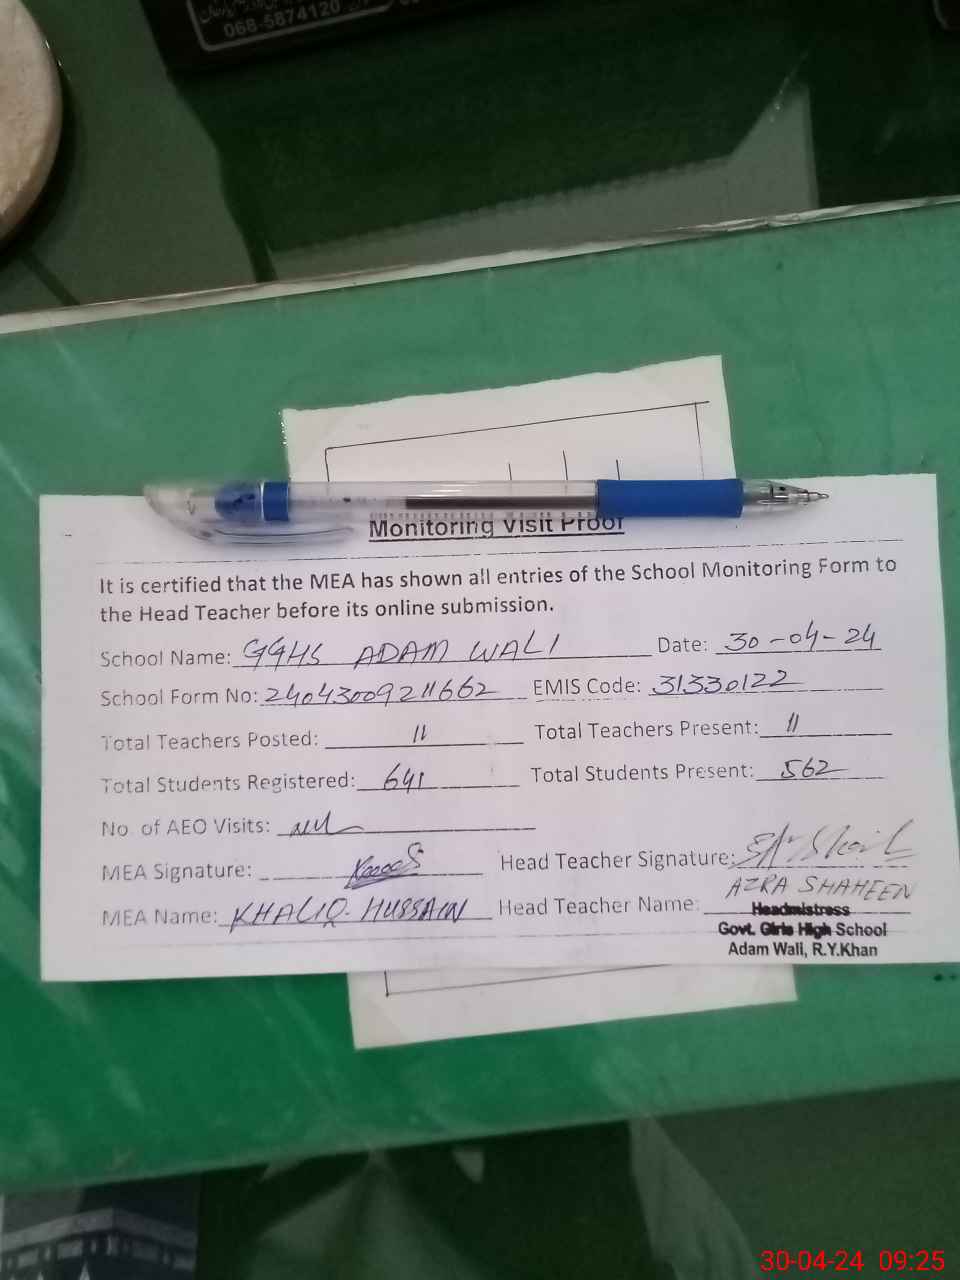 068-5874120
Monitoring Visit Proof
It is certified that the MEA has shown all entries of the School Monitoring Form to
the Head Teacher before its online submission.
School Name: GGHS ADAM WALI Date: 30-04-24
School Form No: 24043009211662 EMIS Code: 31330122
Total Teachers Posted: 11 Total Teachers Present: 11
Total Students Registered: 641 Total Students Present: 562
No. of AEO Visits: Nil
MEA Signature: Head Teacher Signature:
MEA Name: KHALIQ. HUSSAIN Head Teacher Name: AZRA SHAHEEN
Headmistress
Govt. Girls High School
Adam Wali, R.Y.Khan
30-04-24 09:25